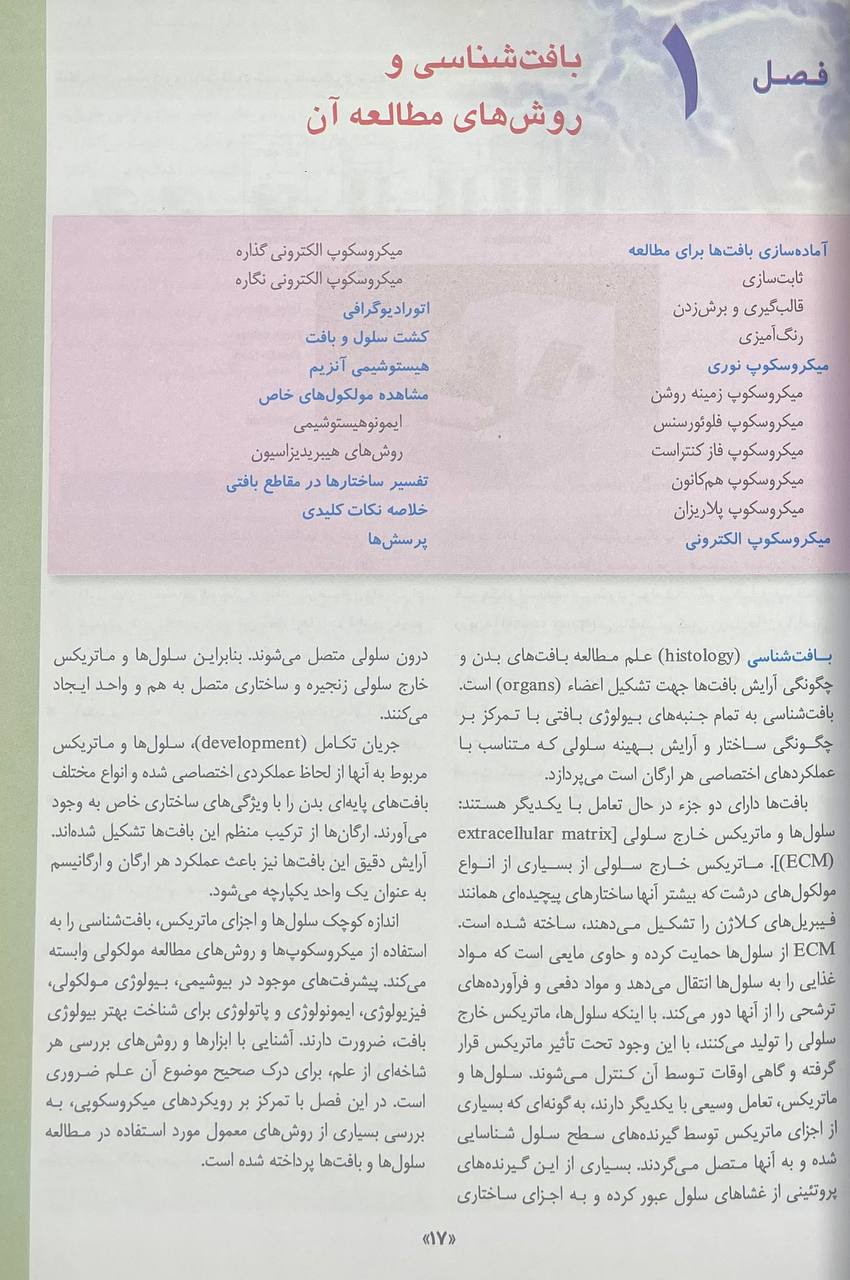 فصل ۱
بافت‌شناسی و
روش‌های مطالعه آن
آماده‌سازی بافت‌ها برای مطالعه
ثابت‌سازی
قالب‌گیری و برش‌زدن
رنگ‌آمیزی
میکروسکوپ نوری
میکروسکوپ زمینه روشن
میکروسکوپ فلوئورسنس
میکروسکوپ فاز کنتراست
میکروسکوپ هم‌کانون
میکروسکوپ پلاریزان
میکروسکوپ الکترونی
میکروسکوپ الکترونی گذاره
میکروسکوپ الکترونی نگاره
اتورادیوگرافی
کشت سلول و بافت
هیستوشیمی آنزیم
مشاهده مولکول‌های خاص
ایمونوهیستوشیمی
روش‌های هیبریدیزاسیون
تفسیر ساختارها در مقاطع بافتی
خلاصه نکات کلیدی
پرسش‌ها
بافت‌شناسی (histology) علم مطالعه بافت‌های بدن و
چگونگی آرایش بافت‌ها جهت تشکیل اعضاء (organs) است.
بافت‌شناسی به تمام جنبه‌های بیولوژی بافتی با تمرکز بر
چگونگی ساختار و آرایش بهینه سلولی که متناسب با
عملکردهای اختصاصی هر ارگان است می‌پردازد.
بافت‌ها دارای دو جزء در حال تعامل با یکدیگر هستند:
سلول‌ها و ماتریکس خارج سلولی [extracellular matrix
(ECM)]. ماتریکس خارج سلولی از بسیاری از انواع
مولکول‌های درشت که بیشتر آنها ساختارهای پیچیده‌ای همانند
فیبریل‌های کلاژن را تشکیل می‌دهند، ساخته شده است.
ECM از سلول‌ها حمایت کرده و حاوی مایعی است که مواد
غذایی را به سلول‌ها انتقال می‌دهد و مواد دفعی و فرآورده‌های
ترشحی را از آنها دور می‌کند. با اینکه سلول‌ها، ماتریکس خارج
سلولی را تولید می‌کنند، با این وجود تحت تأثیر ماتریکس قرار
گرفته و گاهی اوقات توسط آن کنترل می‌شوند. سلول‌ها و
ماتریکس، تعامل وسیعی با یکدیگر دارند، به گونه‌ای که بسیاری
از اجزای ماتریکس توسط گیرنده‌های سطح سلول شناسایی
شده و به آنها متصل می‌گردند. بسیاری از این گیرنده‌های
پروتئینی از غشاهای سلول عبور کرده و به اجزای ساختاری
درون سلولی متصل می‌شوند. بنابراین سلول‌ها و ماتریکس
خارج سلولی زنجیره و ساختاری متصل به هم و واحد ایجاد
می‌کنند.
جریان تکامل (development)، سلول‌ها و ماتریکس
مربوط به آنها از لحاظ عملکردی اختصاصی شده و انواع مختلف
بافت‌های پایه‌ای بدن را با ویژگی‌های ساختاری خاص به وجود
می‌آورند. ارگان‌ها از ترکیب منظم این بافت‌ها تشکیل شده‌اند.
آرایش دقیق این بافت‌ها نیز باعث عملکرد هر ارگان و ارگانیسم
به عنوان یک واحد یکپارچه می‌شود.
اندازه کوچک سلول‌ها و اجزای ماتریکس، بافت‌شناسی را به
استفاده از میکروسکوپ‌ها و روش‌های مطالعه مولکولی وابسته
می‌کند. پیشرفت‌های موجود در بیوشیمی، بیولوژی مولکولی،
فیزیولوژی، ایمونولوژی و پاتولوژی برای شناخت بهتر بیولوژی
بافت، ضرورت دارند. آشنایی با ابزارها و روش‌های بررسی هر
شاخه‌ای از علم، برای درک صحیح موضوع آن علم ضروری
است. در این فصل با تمرکز بر رویکردهای میکروسکوپی، به
بررسی بسیاری از روش‌های معمول مورد استفاده در مطالعه
سلول‌ها و بافت‌ها پرداخته شده است.
«۱۷»